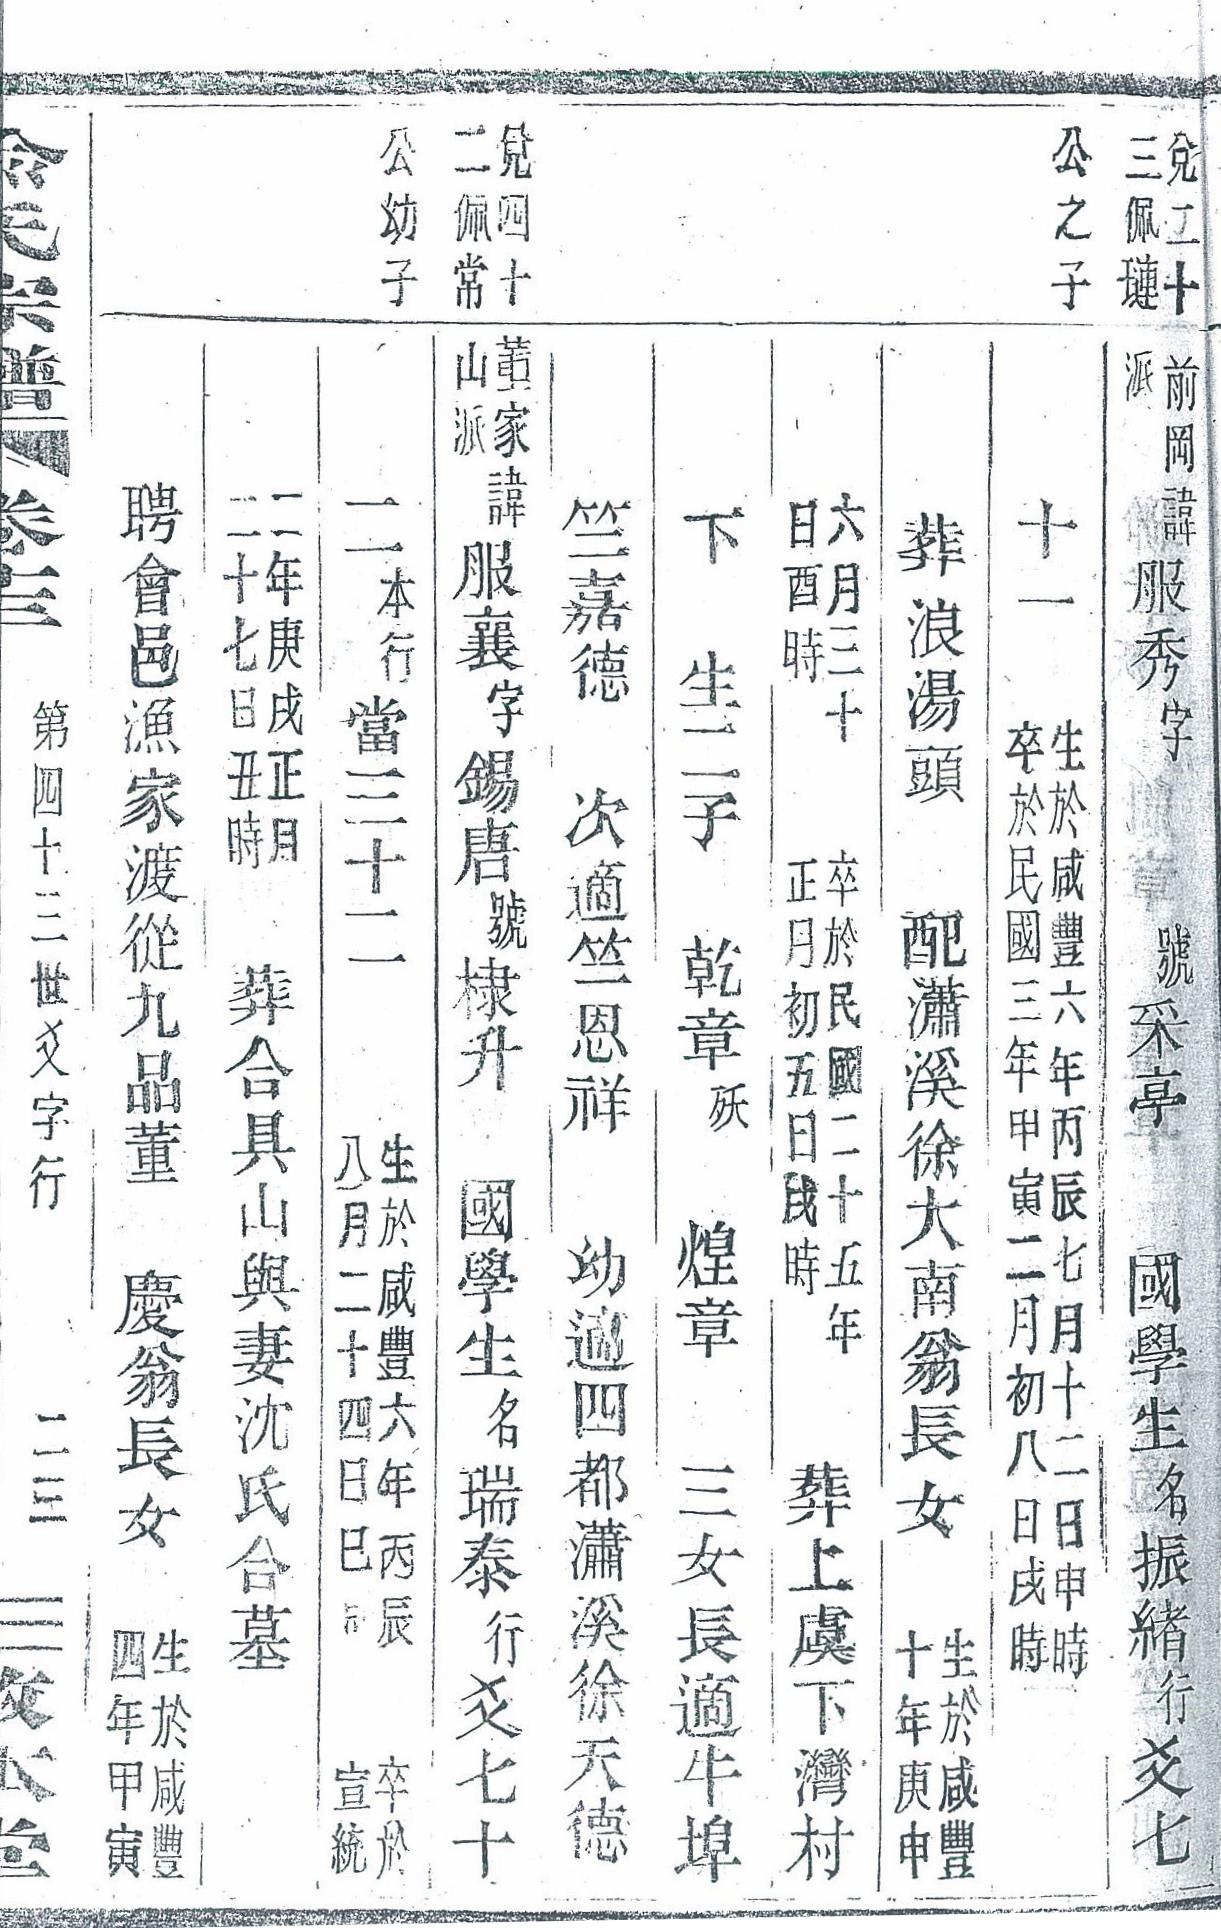 兌二十
三佩璉
公之子
前岡
派
諱服秀字 號采亭 國學生名振緒行爻七
十一 生於咸豐六年丙辰七月十二日申時
卒於民國三年甲寅二月初八日戌時
葬浪湯頭 配瀟溪徐大南翁長女 生於咸豐
十年庚申
六月三十
日酉時
卒於民國二十五年
正月初五日戌時
葬上虞下灣村
下 生二子 乾章殀 煌章 三女長適牛埠
竺嘉德 次適竺恩祥 幼適四都瀟溪徐天德
兌四十
二佩常
公幼子
董家
山派
諱服襄字錫唐號棣升 國學生名瑞泰行爻七十
二本行當三十二 生於咸豐六年丙辰
八月二十四日巳時
卒於
宣統
二年庚戌正月
二十七日丑時
葬合具山與妻沈氏合墓
聘會邑漁家渡從九品董 慶翁長女 生於咸豐
四年甲寅
宗譜 卷三 第四十三世爻字行 二三 敦本堂